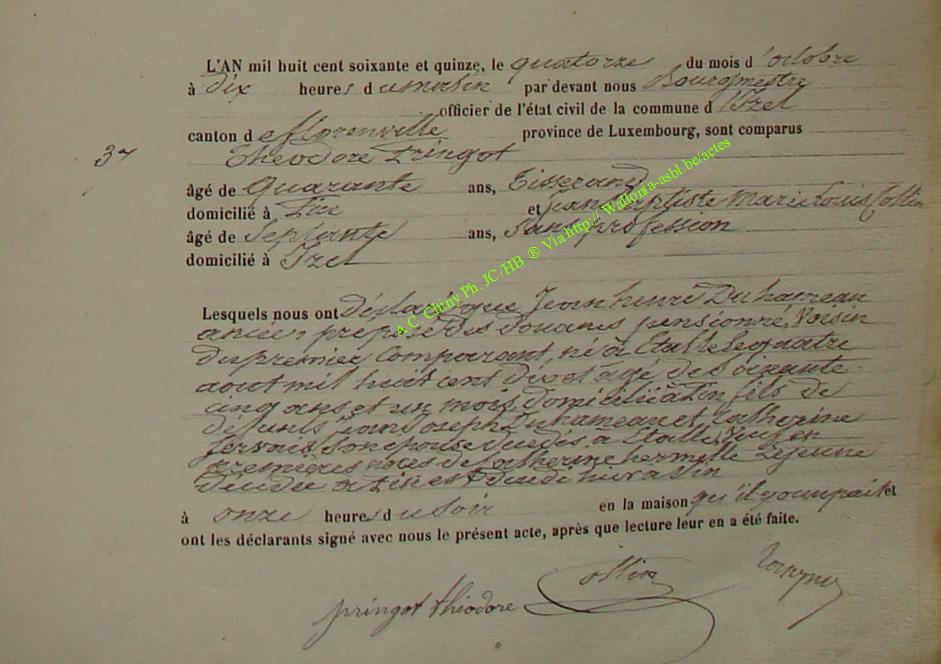 L'AN mil huit cent soixante et quinze, le quatorze du mois d'octobre
à dix heures du matin par devant nous Bourgmestre
officier de l'état civil de la commune d'Izel
canton de florenville province de Luxembourg, sont comparus
37
Théodore Pringot
âgé de quarante ans, Tisserand
domicilié à Pin et Jean Baptiste Marie Louis Collin
âgé de Septante ans, Sans profession
domicilié à Izel
A.C. Chiny Ph. JC/HB ® Via http://Wallonia-asbl.be/actes
Lesquels nous ont déclaré que Jean henri Duhameau
ancien préposé des douanes pensionné, Voisin
du premier Comparant, né à Etalle le quatre
aout mil huit cent dix et agé de soixante
cinq ans et un mois, domicilié à Pin fils de
défunts Jean Joseph Duhameau et Catherine
Gervais Son épouse décédés à Etalle, Veuf en
premières noces de Catherine hermelle Lejeune
décédée à Pin est décédé hier à Pin
à onze heures du soir en la maison qu'il y occupait et
ont les déclarants signé avec nous le présent acte, après que lecture leur en a été faite.
pringot théodore Collin